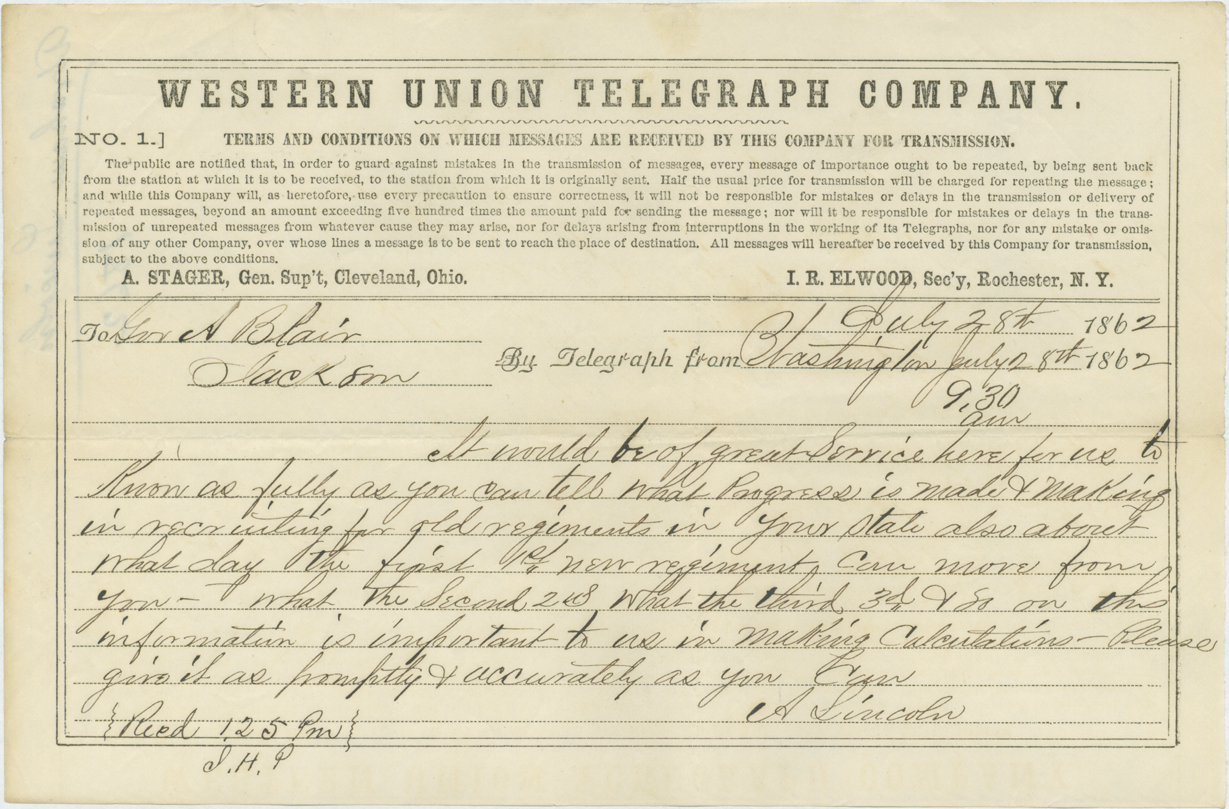 WESTERN UNION TELEGRAPH COMPANY.
NO. 1.] TERMS AND CONDITIONS ON WHICH MESSAGES ARE RECEIVED BY THIS COMPANY FOR TRANSMISSION.
The public are notified that, in order to guard against mistakes in the transmission of messages, every message of importance ought to be repeated, by being sent back
from the station at which it is to be received, to the station from which it is originally sent. Half the usual price for transmission will be charged for repeating the message;
and while this Company will, as heretofore, use every precaution to ensure correctness, it will not be responsible for mistakes or delays in the transmission or delivery of
repeated messages, beyond an amount exceeding five hundred times the amount paid for sending the message; nor will it be responsible for mistakes or delays in the trans-
mission of unrepeated messages from whatever cause they may arise, nor for delays arising from interruptions in the working of its Telegraphs, nor for any mistake or omis-
sion of any other Company, over whose lines a message is to be sent to reach the place of destination. All messages will hereafter be received by this Company for transmission,
subject to the above conditions.
A. STAGER, Gen. Sup't, Cleveland, Ohio. I. R. ELWOOD, Sec'y, Rochester, N. Y.
July 28th 1862
To Gov A Blair
By Telegraph from Washington July 28th 1862
Jackson
9,30
am
It would be of great Service here for us to
Know as fully as you can tell what Progress is made & making
in recruiting for old regiments in your state also about
what day the first 1st new regiment can move from
you – what the Second 2nd what the third 3d & so on this
information is important to us in making Calculations – Please
give it as promptly & accurately as you Can
A Lincoln
{Recd 1,25 Pm}
J. H. P